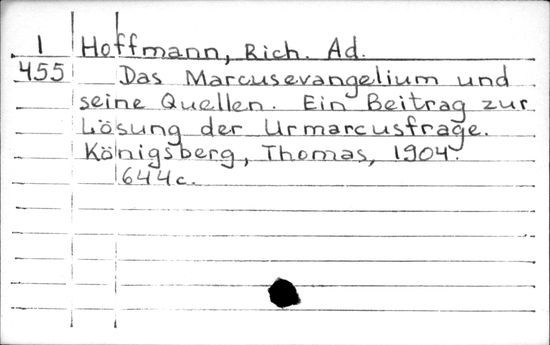 1 Hoffmann, Rich. Ad.
455 Das Marcusevangelium und
seine Quellen. Ein Beitrag zur
Lösung der Urmarcusfrage.
Königsberg, Thomas, 1904.
644c.